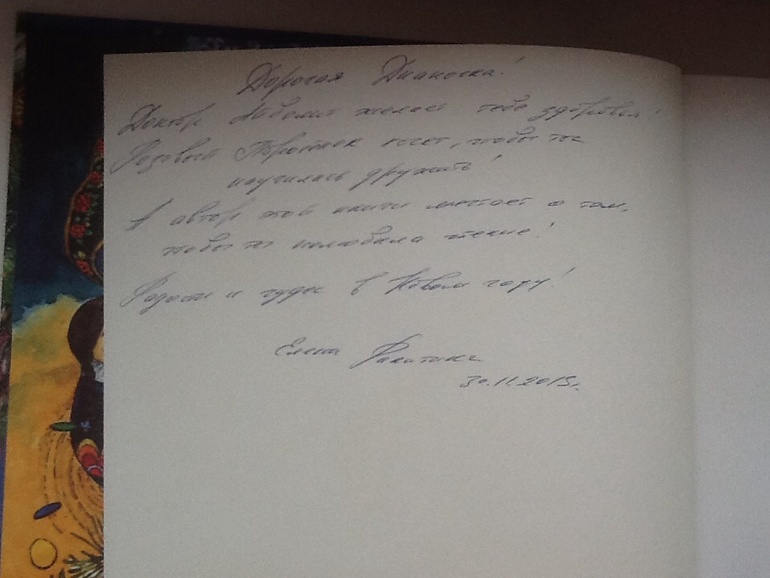 Дорогая Дианочка!
Доктор желает тебе здоровья!
Розовый Поросёнок хочет, чтобы ты
научилась дружить!
А автор этой книги мечтает о том,
чтобы ты полюбила чтение!
Радости и чудес в Новом году!
Елена Ракитина
30.11.2015г.